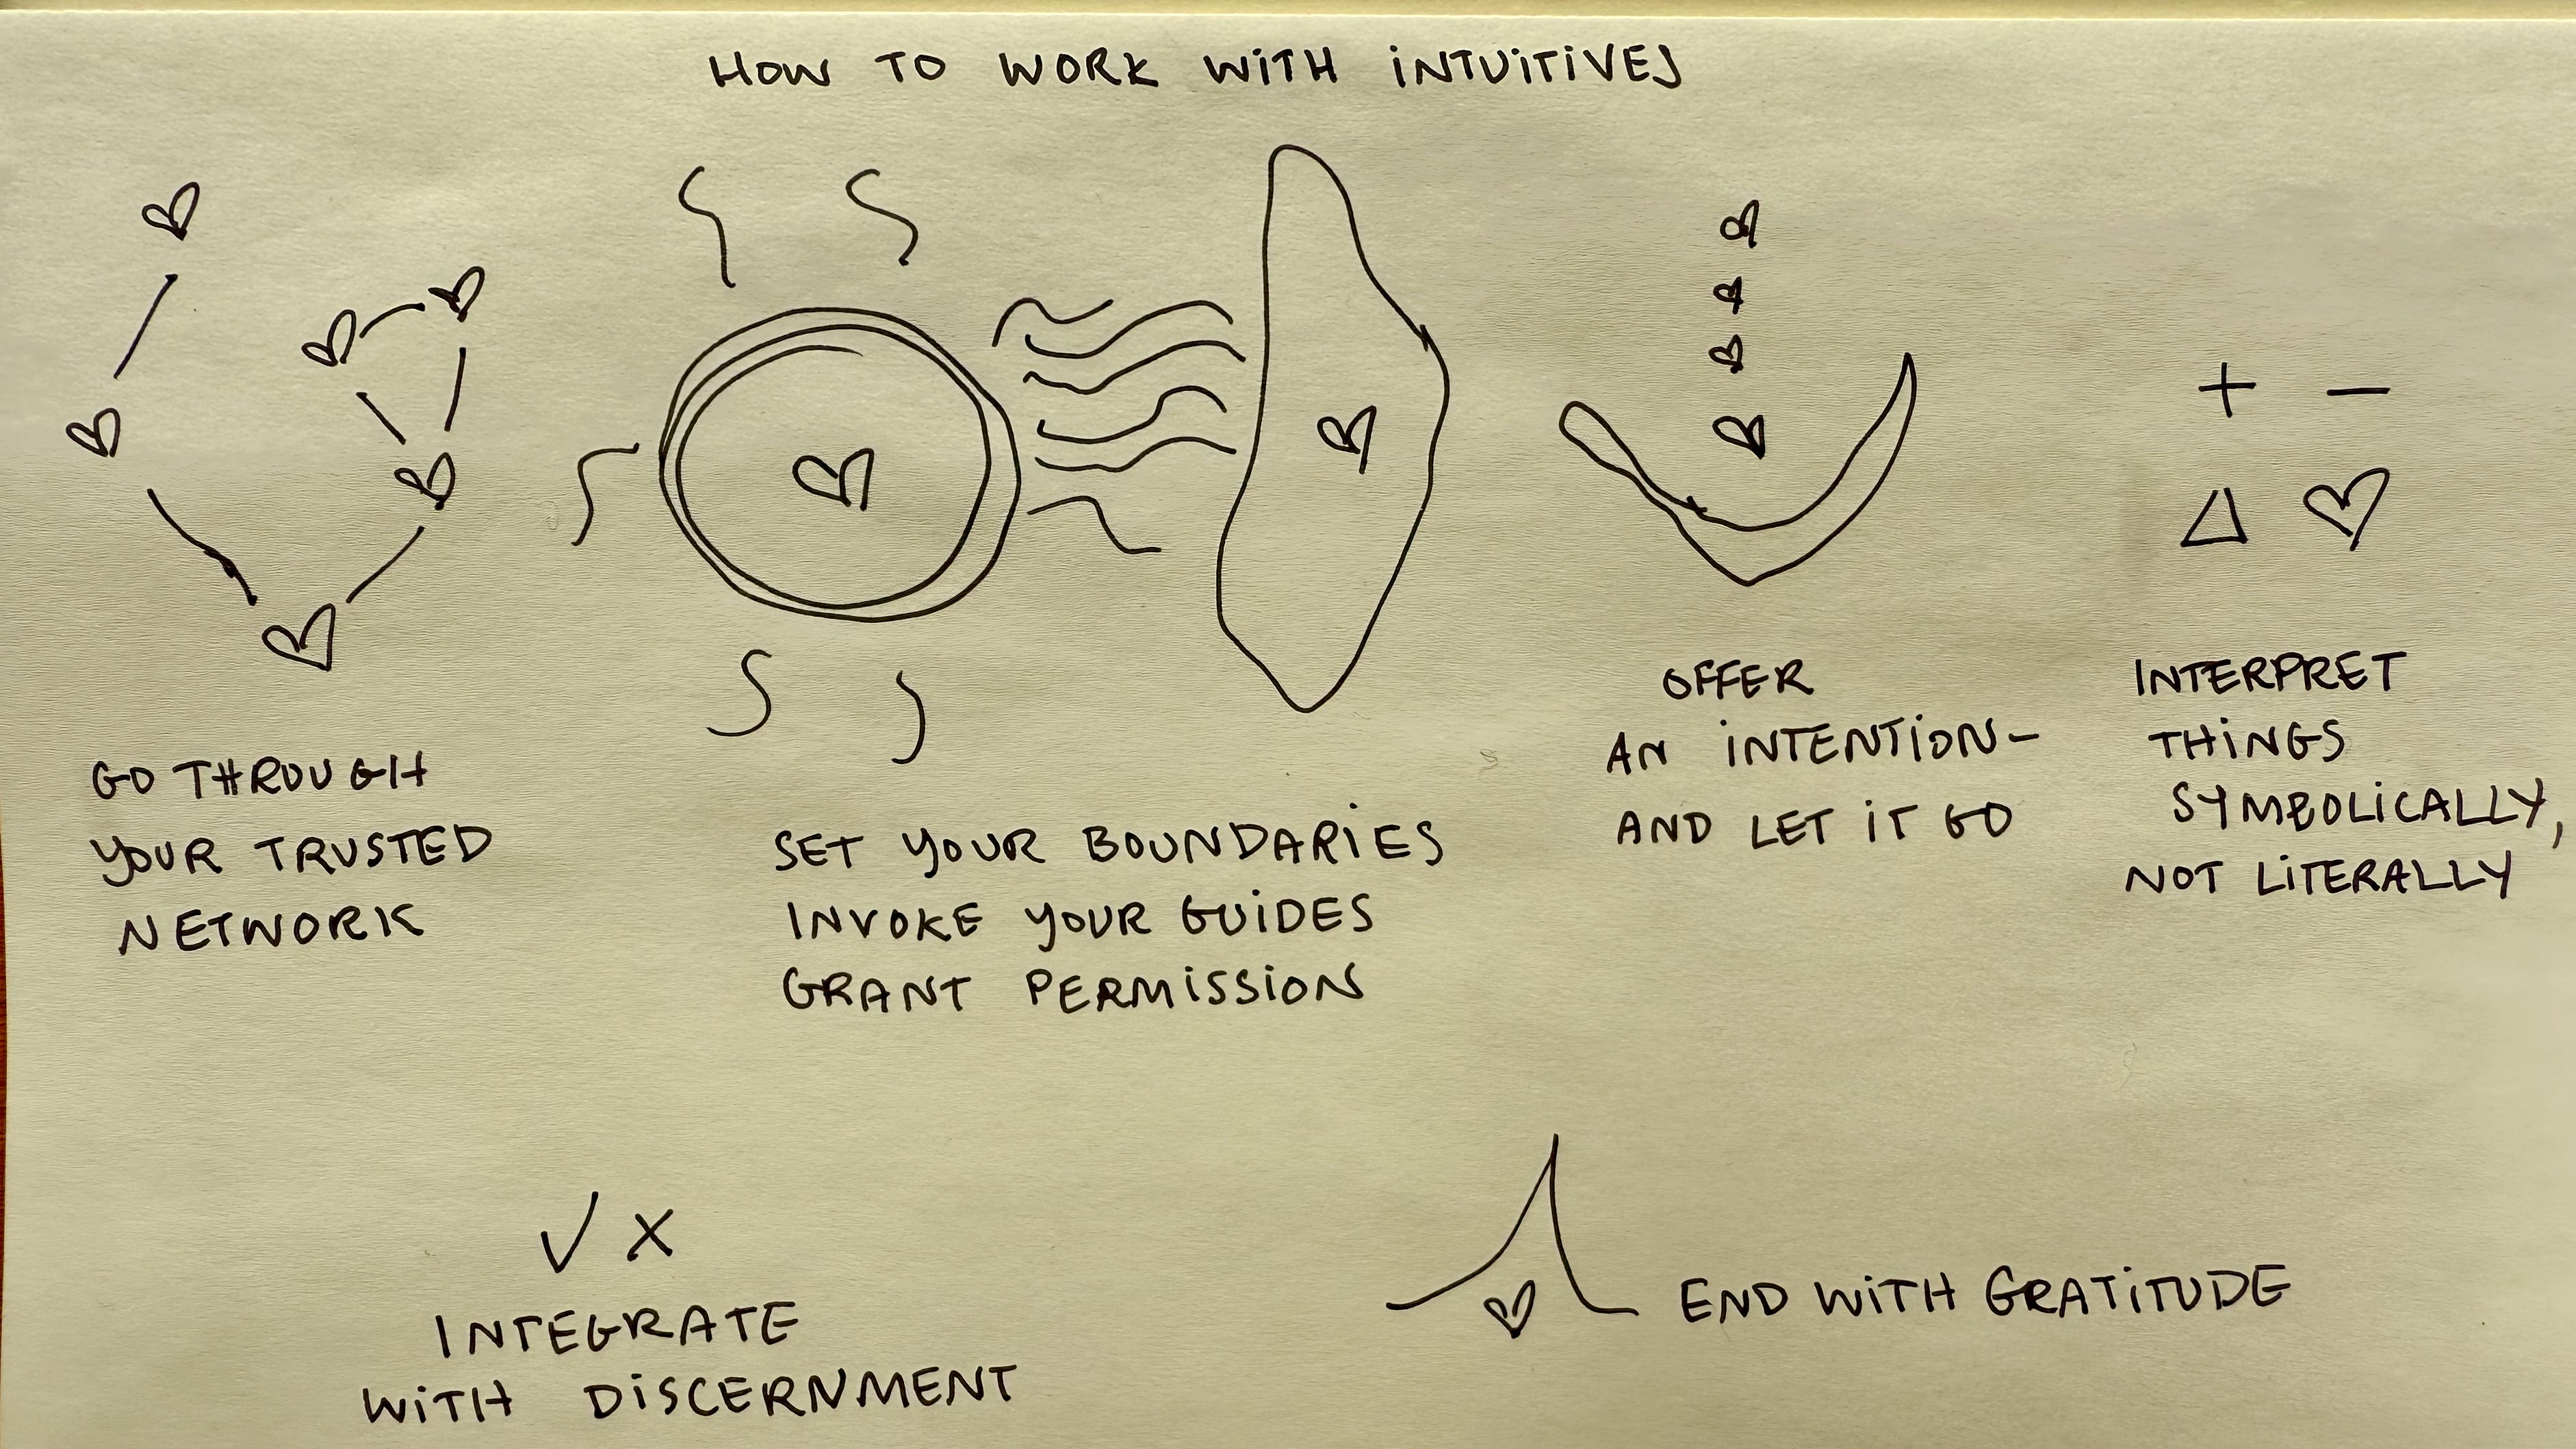 HOW TO WORK WITH INTUITIVES
GO THROUGH
YOUR TRUSTED
NETWORK
SET YOUR BOUNDARIES
INVOKE YOUR GUIDES
GRANT PERMISSION
OFFER
AN INTENTION-
AND LET IT GO
INTERPRET
THINGS
SYMBOLICALLY,
NOT LITERALLY
INTEGRATE
WITH DISCERNMENT
END WITH GRATITUDE